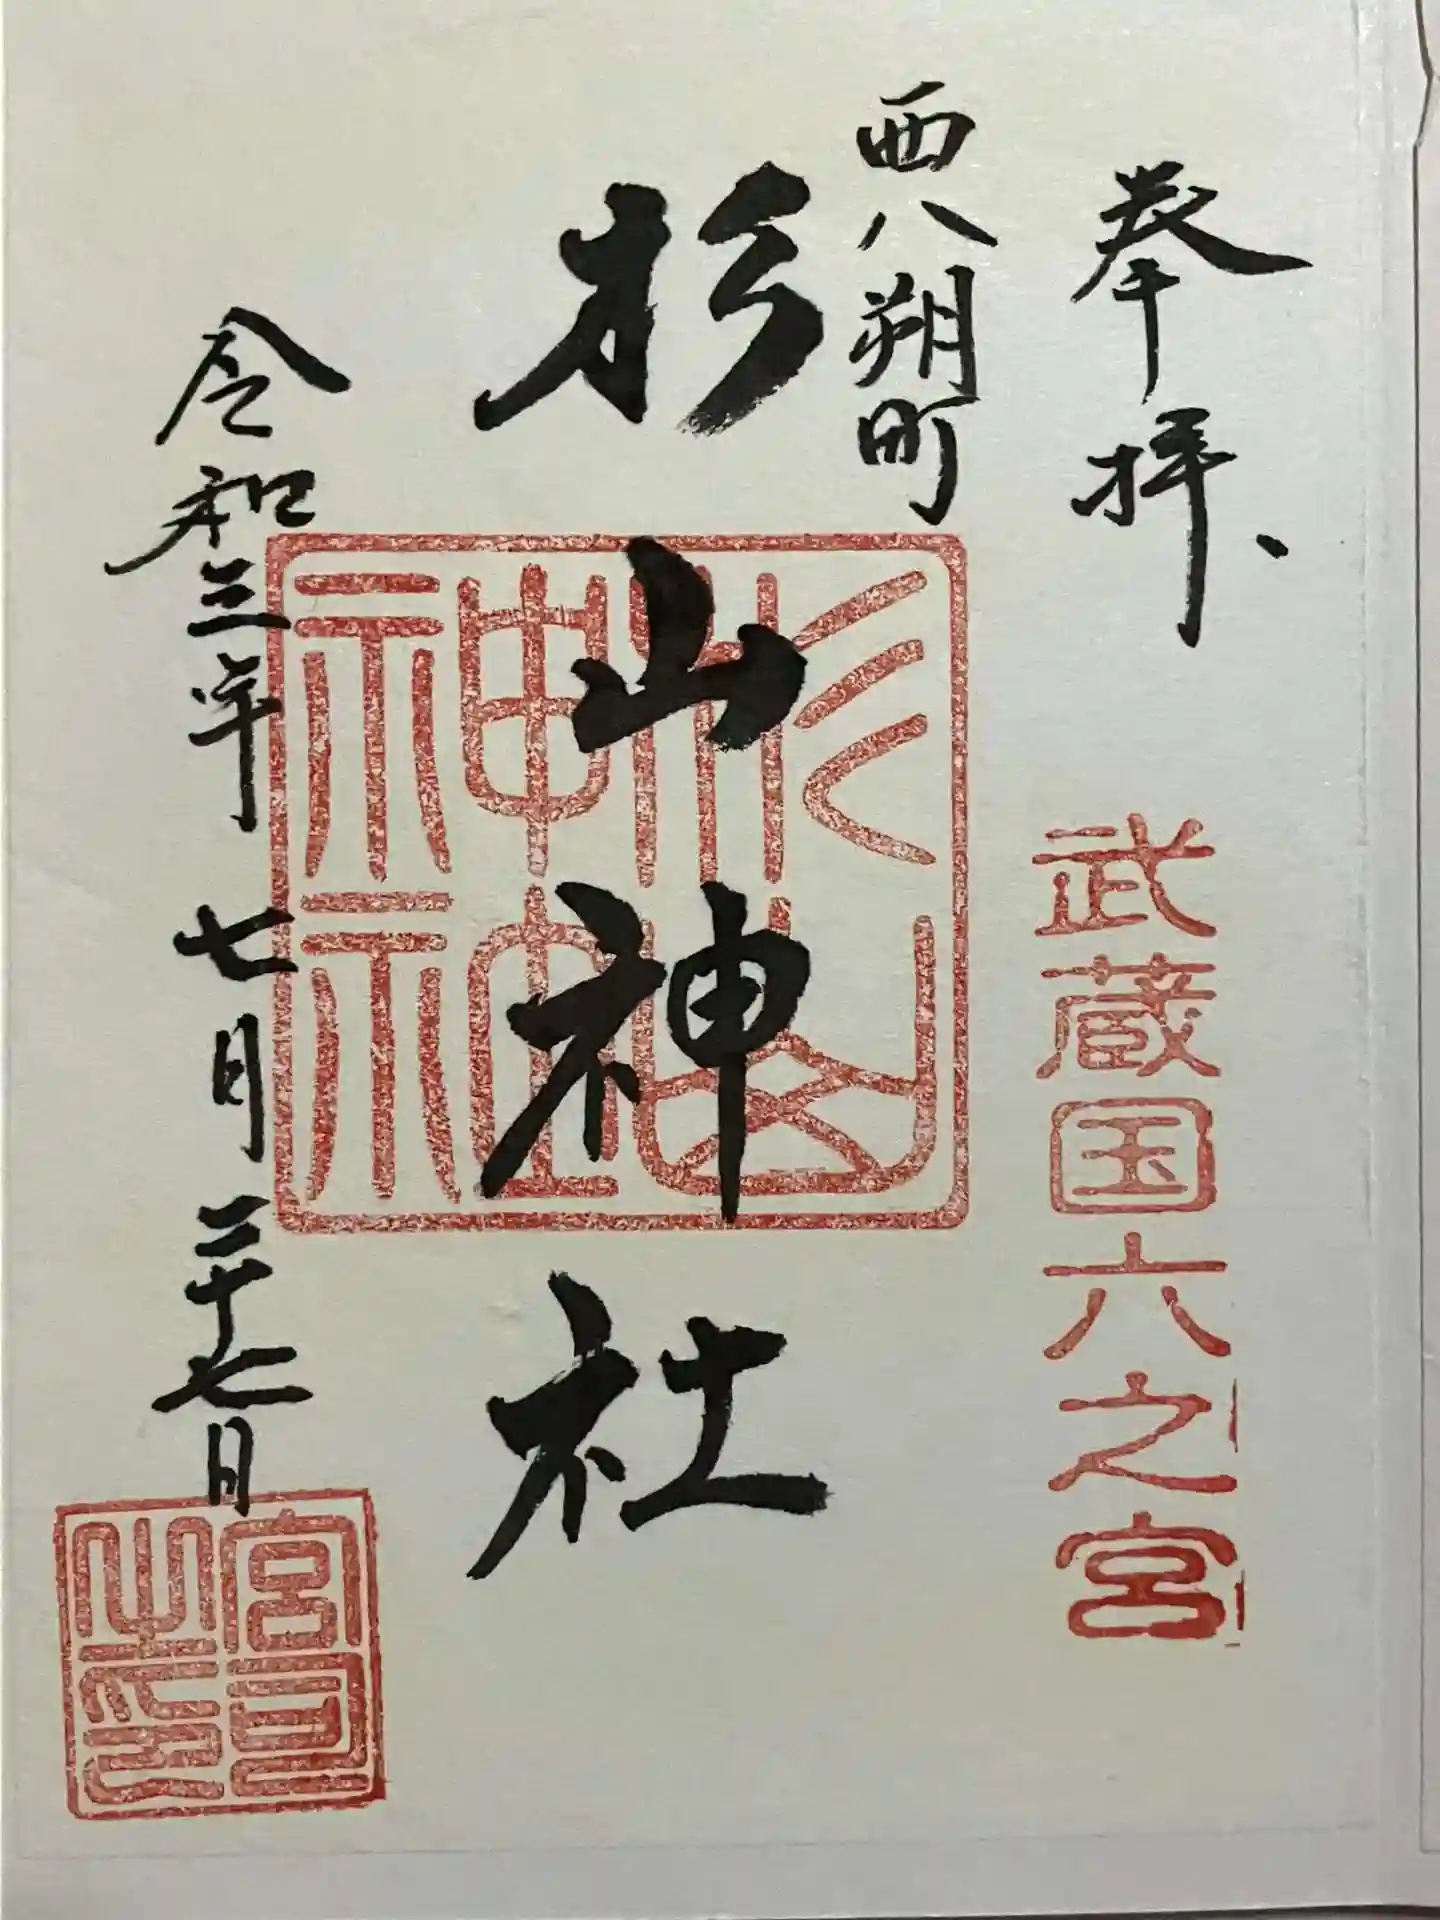 奉拝、
武蔵国六之宮
西八朔町
杉山神社
杉山神社
神社
令和三年 七月 二十七日
宮司之印